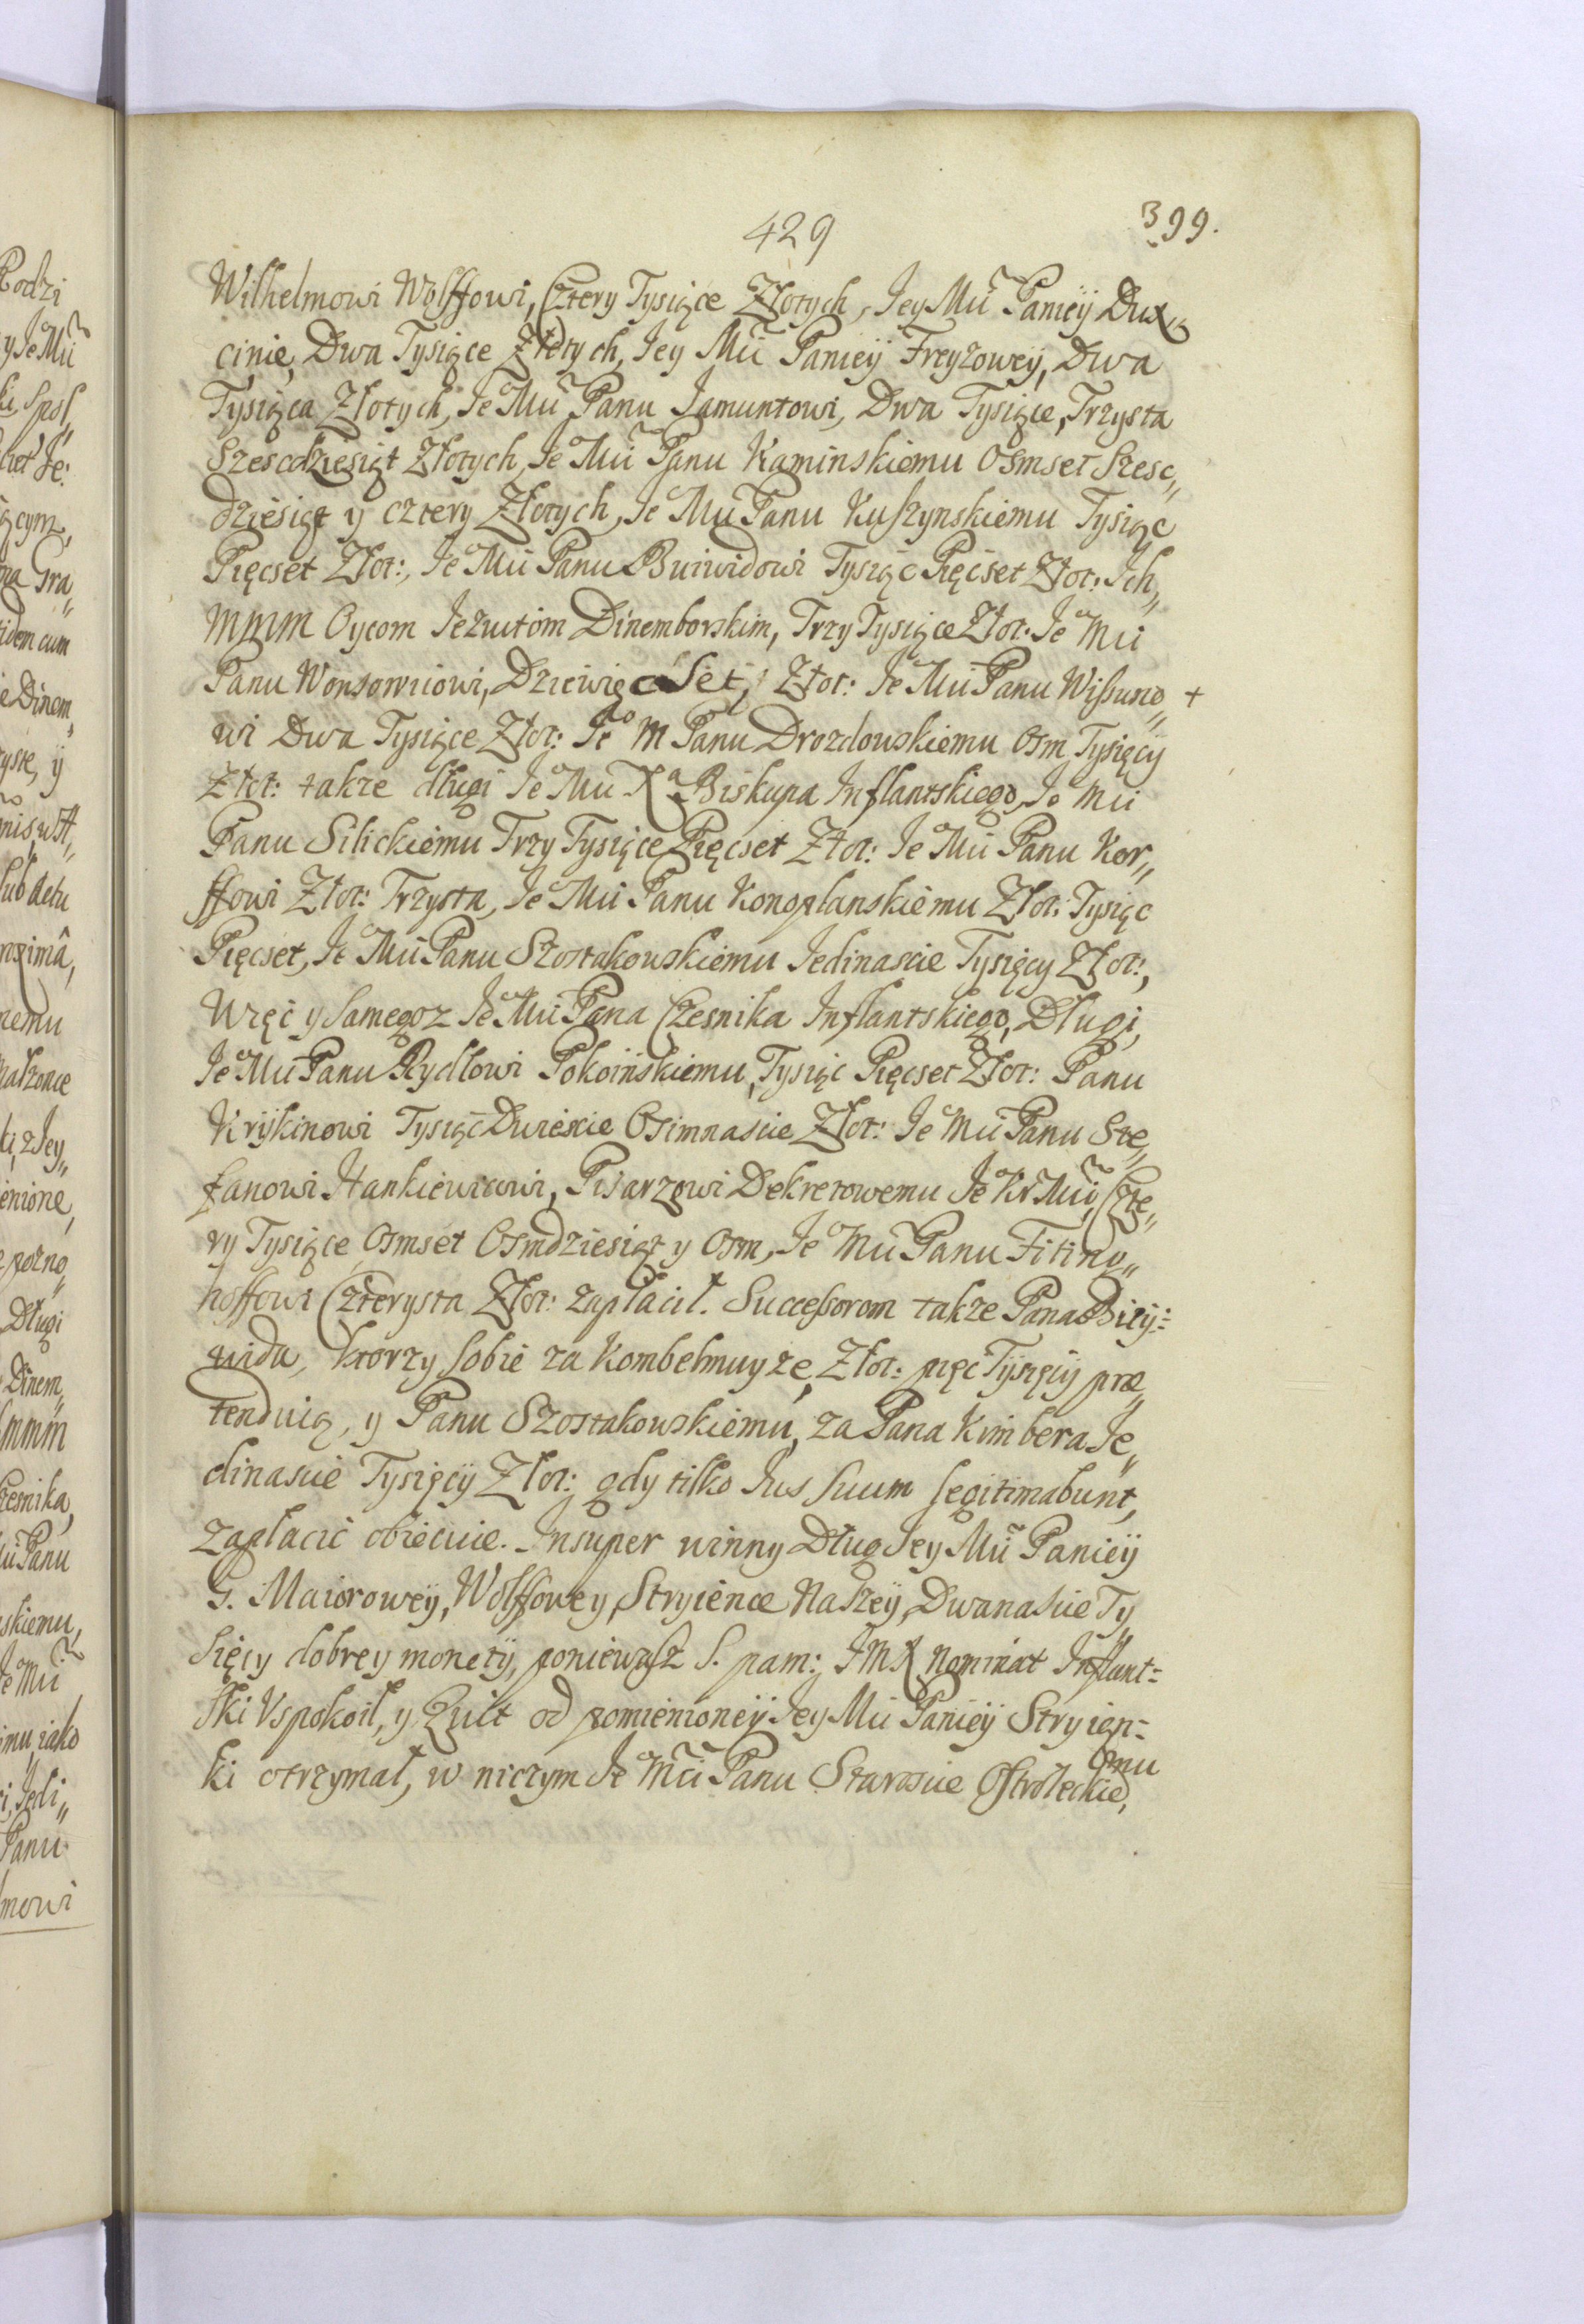 429
399.
Wilhelmowi Wolffowi, Cztery Tysiące Złotych, Jey Mci Panieÿ Dux„
cinie, Dwa Tysiące Złotych, Jey Mci Panieÿ Freyzoweÿ, Dwa
Tysiąca Złotych, Je Mci Panu Jamuntowi, Dwa Tysiące, Trzysta
Szescdziesiąt Złotych, Je Mci Panu Kaminskiemu Osmset Szesc„
dziesiąt y cztery Złotych, Je Mci Panu Kuszynskiemu Tysiąc
Pięcset Złot:, Je Mci Panu Buiwidowi Tysiąc Pięcset Złot: Ich„
MMM Oycom Jezuitom Dinemborskim, Trzy Tysiące Złot: Je Mci
Panu Wonsowiiowi, Dziewięc Set, Złot: Je Mci Panu Wißuno„ +
wi Dwa Tysiące Złot: Je͠o M Panu Drozdowskiemu Osm Tysięcy
Złot: takze długi Je Mci Xa Biskupa Inflantskiego, Je Mci
Panu Silickiemu Trzy Tysiące Pięcset Złot: Je Mci Panu Kor„
ffowi Złot: Trzysta, Je Mci Panu Konoplanskiemu Złot: Tysiąc
Pięcset, Je Mci Panu Szostakowskiemu Jedinascie Tysięcy Złot:,
Węc y samegoz Je Mci Pana Czesnika Inflantskiego, Długi,
Je Mci Panu Rydlowi Pokoinskiemu, Tysiąc Pięcset Złot: Panu
Krÿkinowi Tysiąc Dwiescie Osimnascie Złot: Je Mci Panu Ste„
fanowi Hankiewiczowi, Pisarzowi Dekretowemu Je Kr Mci, Czte„
ry Tysiące Osmset Osmdziesiąt y Osm, Je Mci Panu Fitino„
hoffowi Czterysta Złot: zapłacił. Succeßorom takze Pana Biiÿ:
wida, ktorzy sobie za Kombelmuyzę, Złot: pięc Tÿsięcÿ præ„
tenduią, y Panu Szostakowskiemu, za Pana Kimbera Je„
dinascie Tysięcÿ Złot: gdy tilko Jus suum legitimabunt,
zapłacic obiecuie. Insuper winny Dług Jey Mci Panieÿ
G. Maioroweÿ, Wolffowey, Stryience Naszeÿ, Dwanascie Ty„
sięcy dobrey monetÿ, poniewasz S. pam: JMX Nominat Inflant=
ski Uspokoił, y Quit od pomienioneÿ Jey Mci Panieÿ Stryien=
ki otrzymał, w niczym Je Mci Panu Staroscie Ostroleckie„
mu